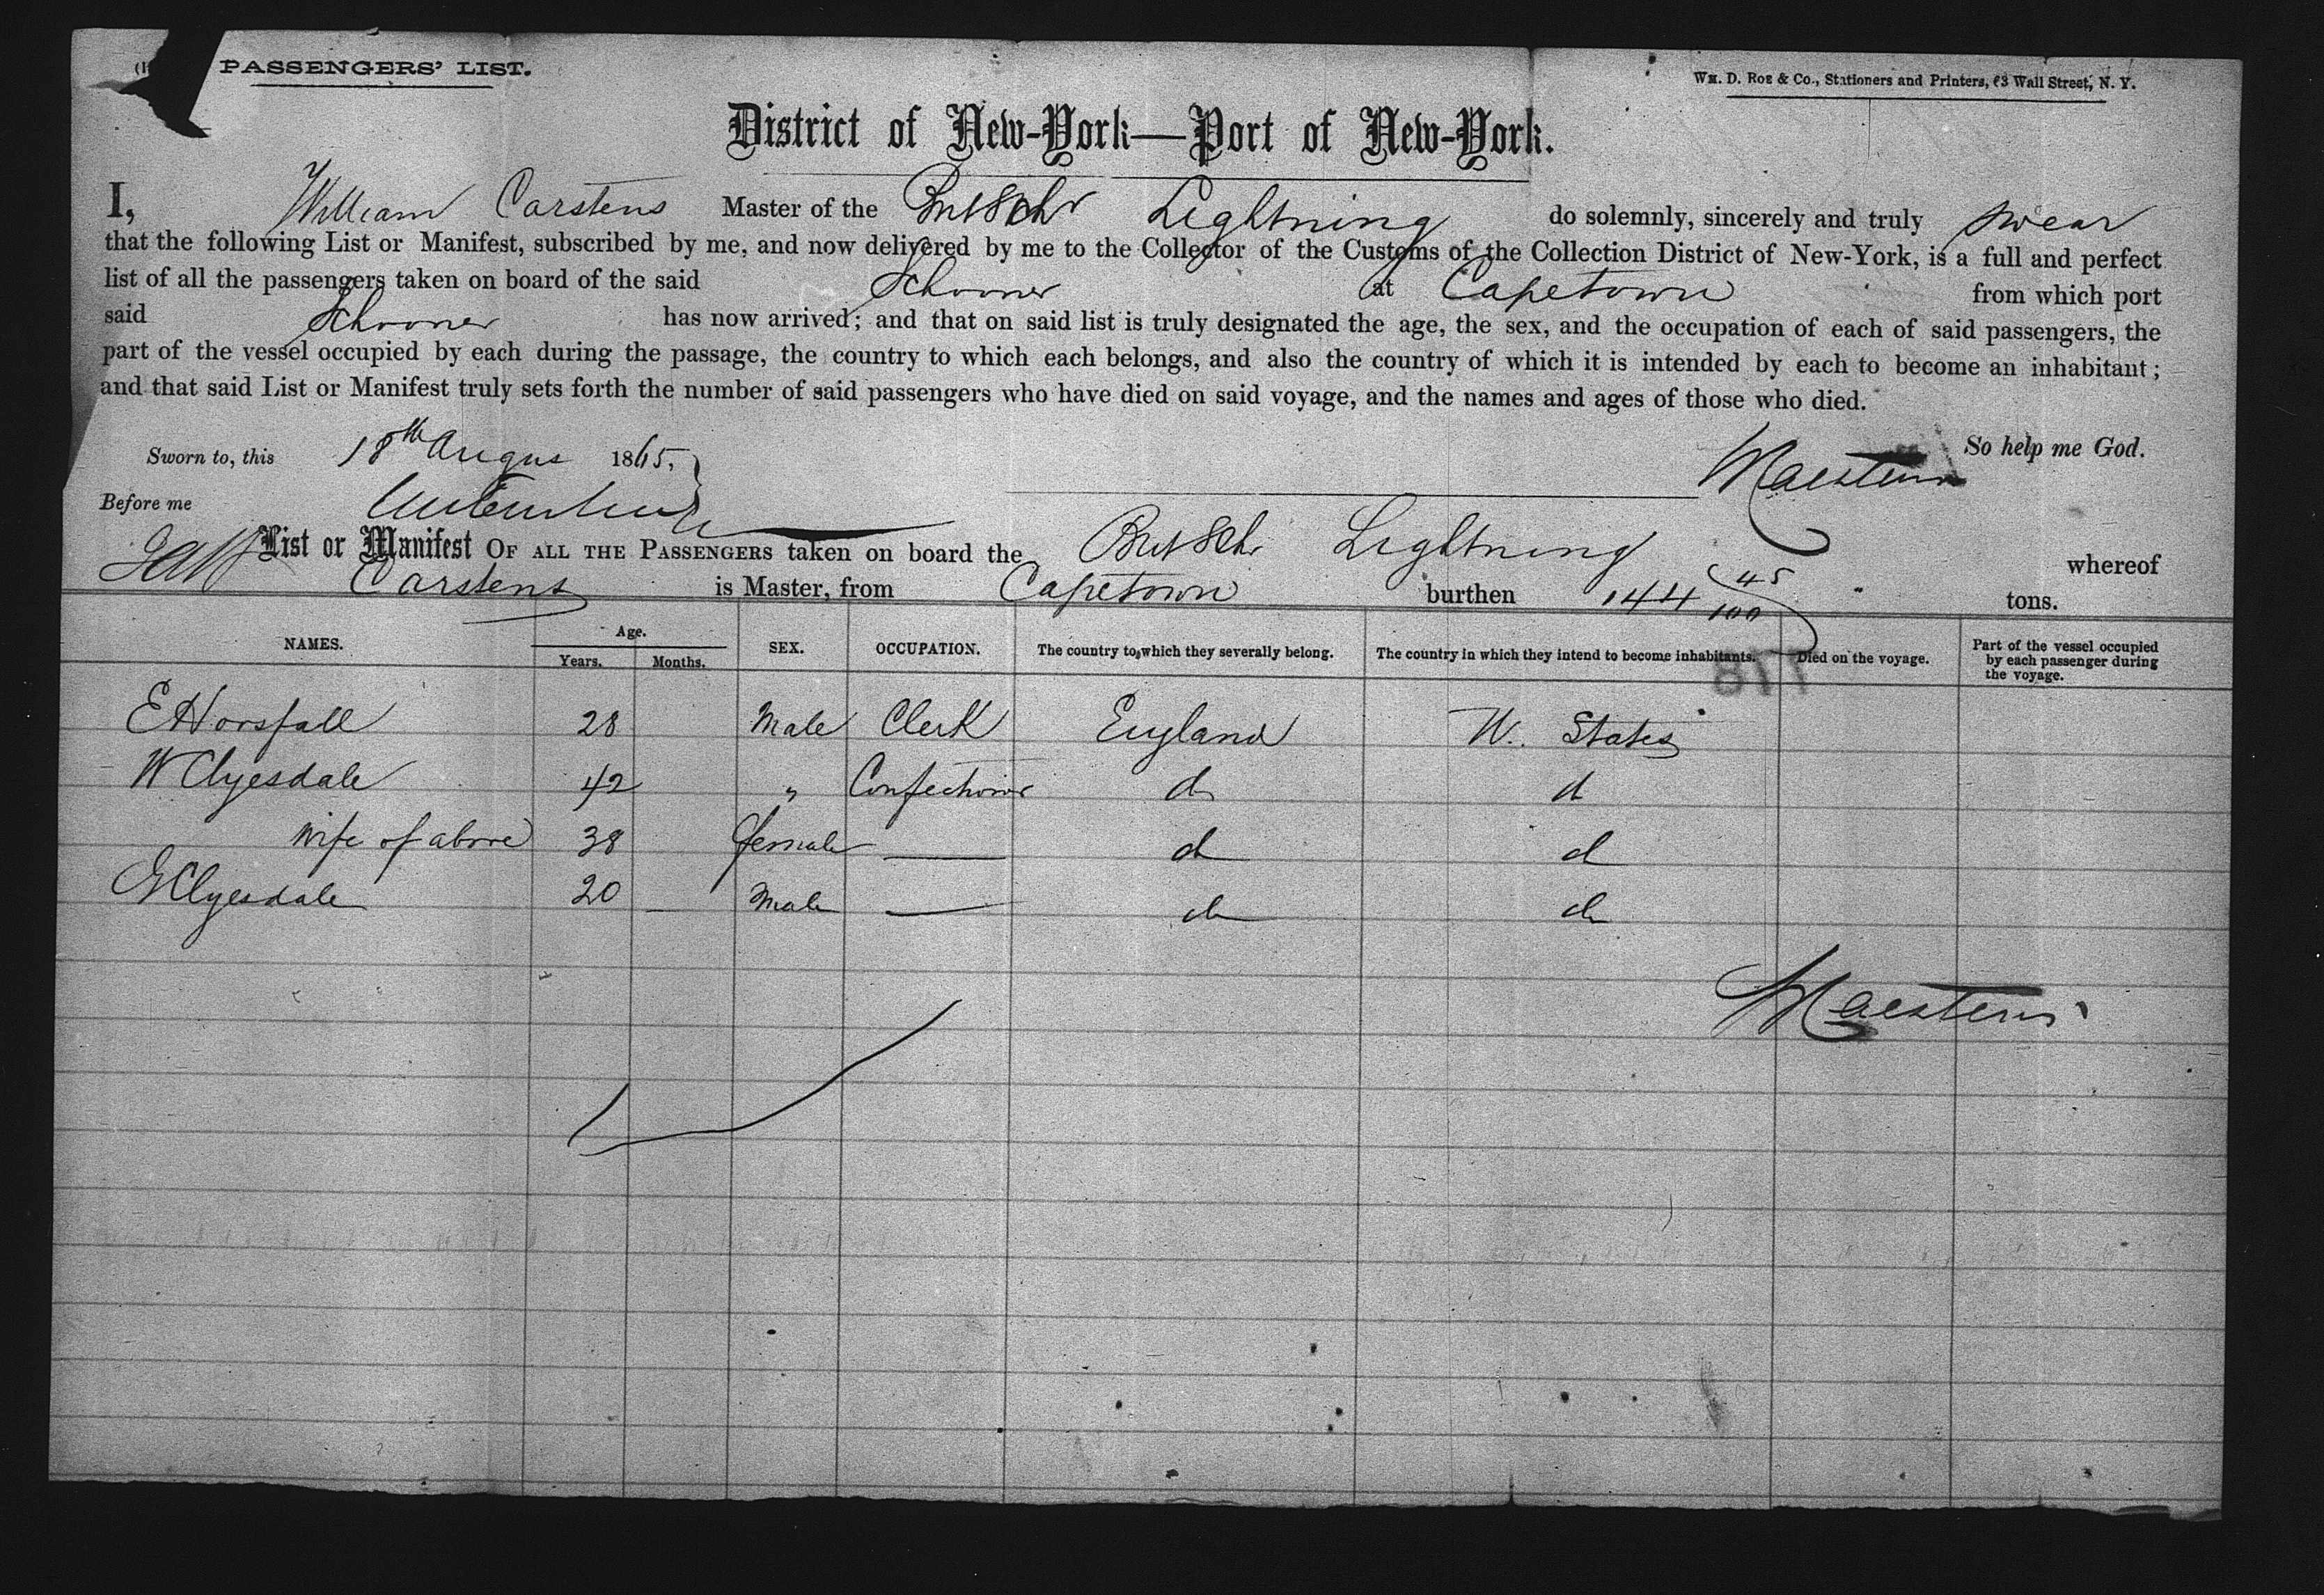 PASSENGERS' LIST.
Wm. D. Roe & Co., Stationers and Printers, 63 Wall Street, N. Y.
District of New-York—Port of New-York.
I, William Carstens Master of the Brit Schr Lightning do solemnly, sincerely and truly swear
that the following List or Manifest, subscribed by me, and now delivered by me to the Collector of the Customs of the Collection District of New-York, is a full and perfect
list of all the passengers taken on board of the said Schooner at Capetown from which port
said Schooner has now arrived; and that on said list is truly designated the age, the sex, and the occupation of each of said passengers, the
part of the vessel occupied by each during the passage, the country to which each belongs, and also the country of which it is intended by each to become an inhabitant;
and that said List or Manifest truly sets forth the number of said passengers who have died on said voyage, and the names and ages of those who died.
So help me God.
Sworn to, this 18th Augus 1865,
Before me
List or Manifest OF ALL THE PASSENGERS taken on board the Brit Schr Lightning whereof
Carstens is Master, from Capetown burthen 144 45/100 tons.
NAMES. Age. Years. Months. SEX. OCCUPATION. The country to which they severally belong. The country in which they intend to become inhabitants. Died on the voyage. Part of the vessel occupied by each passenger during the voyage.
E Horsfall 28 Male Clerk England U. States
W Clyesdale 42 " Confectioner d d
wife of above 38 female — d d
G Clyesdale 20 — Male — d d